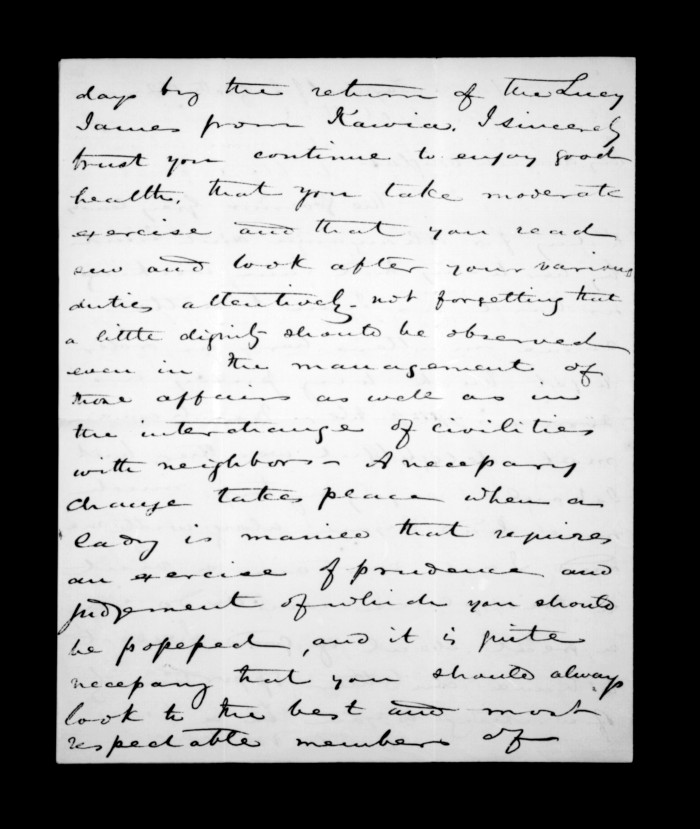 days by the return of the Lucy
James from Kawia. I sincerely
trust you continue to enjoy good
health, that you take moderate
exercise and that you read
sew and look after your various
duties attentively - not forgetting that
a little dignity should be observed
even in the management of
those affairs as well as in
the interchange of civilities
with neighbors - A necessary
change takes place when a
lady is married that requires
an exercise of prudence and
judgement of which you should
be possessed, and it is quite
necessary that you should always
look to the best and most
respectable members of